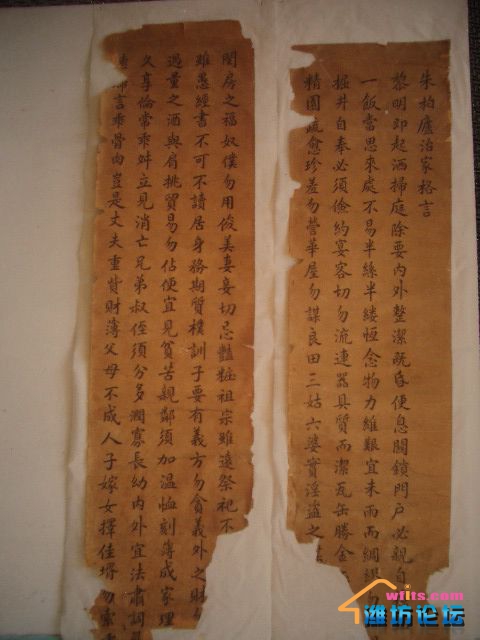 朱柏廬治家格言
黎明即起洒掃庭除要內外整潔既昏便息關鎖門戶必親自
一飯當思來處不易半絲半縷恆念物力維艱宜未雨而綢繆勿
掘井自奉必須儉約宴客切勿流連器具質而潔瓦缶勝金
精園蔬愈珍羞勿營華屋勿謀良田三姑六婆實淫盜之
閨房之福奴僕勿用俊美妻妾切忌豔粧祖宗雖遠祭祀不
雖愚經書不可不讀居身務期質樸訓子要有義方勿貪義外之財
過量之酒與肩挑貿易勿佔便宜見貧苦親鄰須加温恤刻薄成家理
久享倫常乖舛立見消亡兄弟叔侄須分多潤寡長幼內外宜法肅詞
婦言乖骨肉豈是丈夫重貲財薄父母不成人子嫁女擇佳壻勿索
wfits.com
濰坊论坛